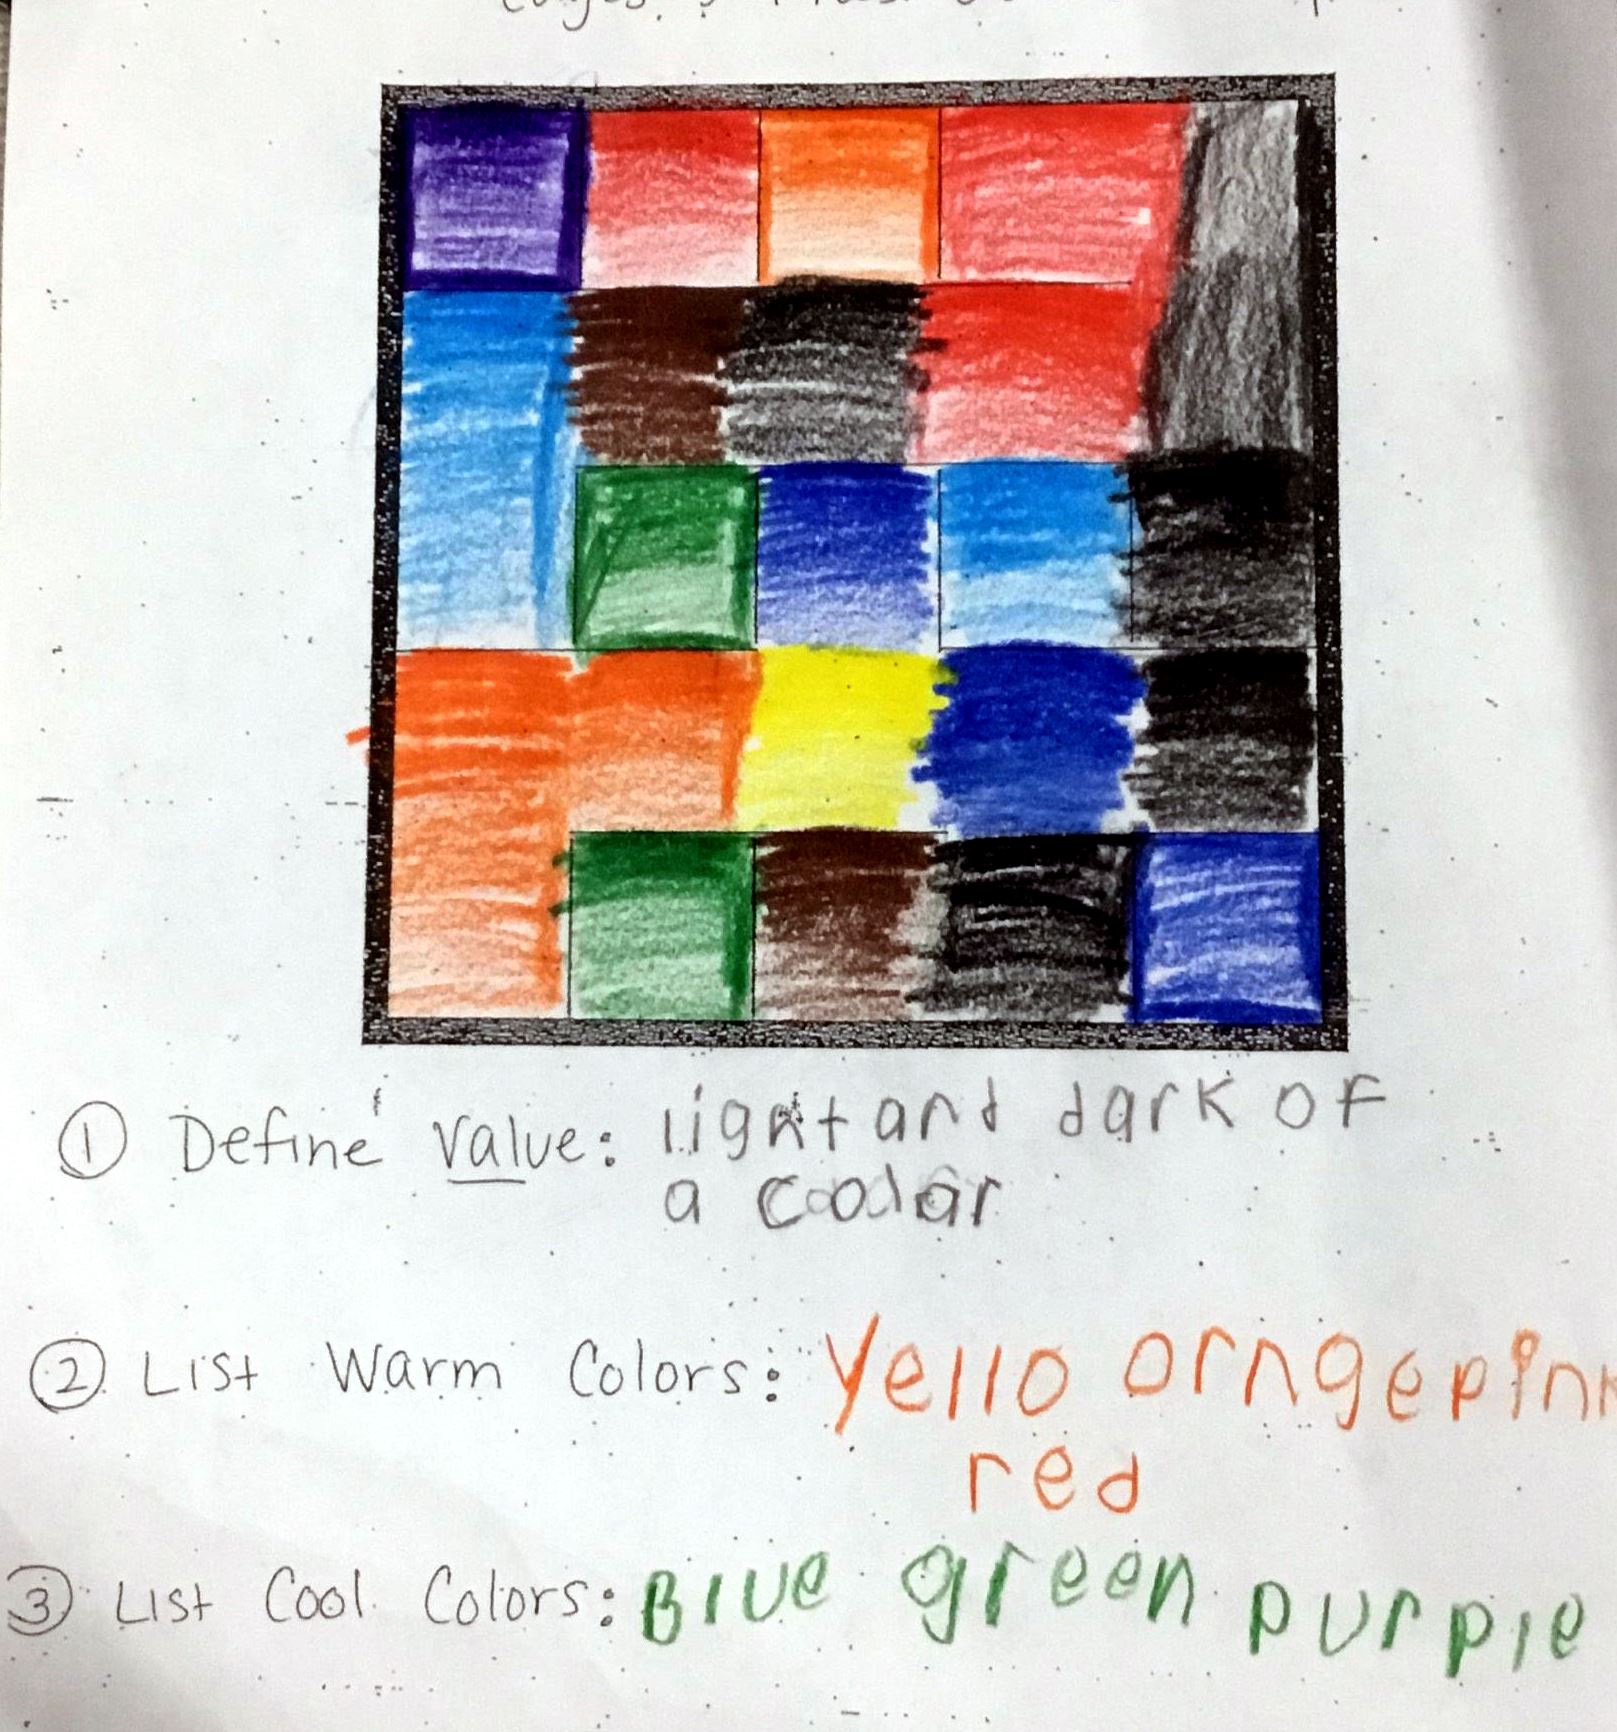 ① Define Value: light and dark of
a color
② List Warm Colors: Yello ornge pink
red
③ List Cool Colors: Blue green purple